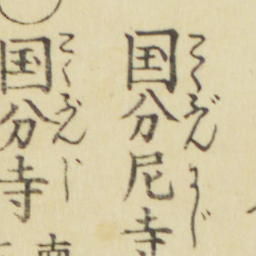 国分尼寺
こくぶんにじ
国分寺
こくぶんじ